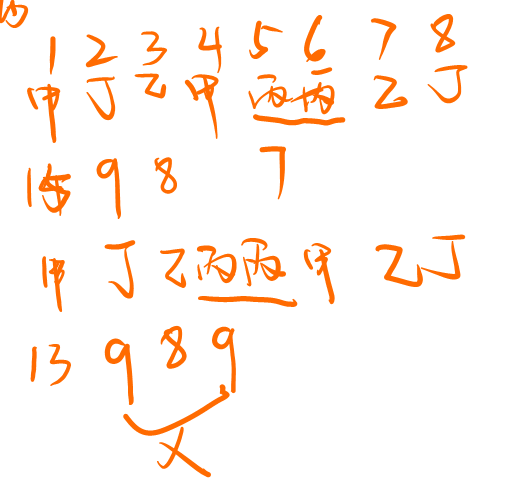 1 2 3 4 5 6 7 8
甲 丁 乙 甲 丙 丙 乙 丁
15 9 8 7
甲 丁 乙 丙 丙 甲 乙 丁
13 9 8 9
X